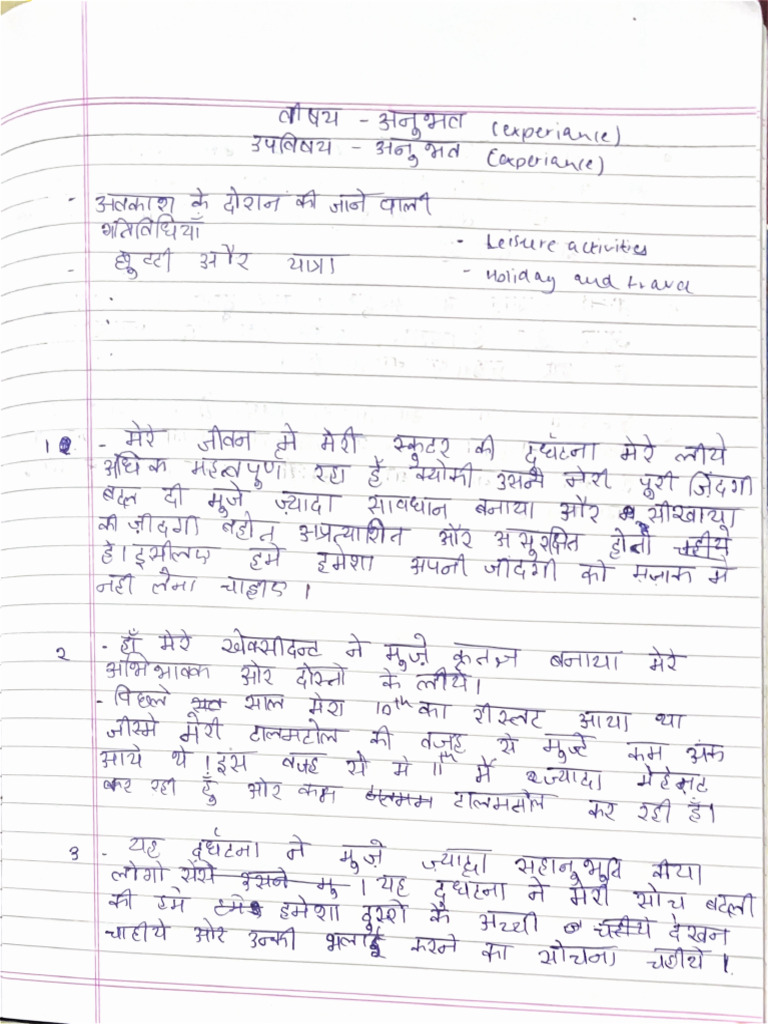 वीषय - अनुभव (experiance)
उपविषय - अनुभव (experiance)
- अवकाश के दोरान की जाने वाली
गतिविधियाँ - Leisure activities
- छुटटी और यात्रा - Holiday and travel
1 - मेरे जीवन मे मेरी स्कूटर की दुर्घटना मेरे लीये
अधिक महत्वपुण रहा हैं क्योकी उसने मेरी पुरी ज़िंदगी
बदल दी मुजे ज़्यादा सावधान बनाया और सीखाया
की ज़ीदगी बहोत अप्रत्याशित और असुरक्षित होती चहीये
हे। इसीलए हमे हमेशा अपनी जीदगी को मज़ाक मे
नही लेना चाहाए।
2 - हाँ मेरे एक्सीदन्ट ने मुज़े कृतज्ञ बनाया मेरे
अभिभावक ओर दोस्तो के लीये।
- पिछले साल मेरा 10th का रीसल्ट आया था
जीस्मे मेरी टालमटोल की वजह से मुज्हे कम अंक
आये थे। इस वजह से मे 11th में ज्यादा मेहेनट
कर रही हुँ ओर कम टालमटोल कर रही हुँ।
3 - यह दुर्घटना ने मुज़े ज़्यादा सहानुभुति दीया
लोगो सेसे इसने मु। यह दुघटना ने मेरी सोच बदली
की हमे हमेशा दुसरो के अच्छी चहीये देखन
चाहीये ओर उन्की भलाई करने का सोचना चहीये।